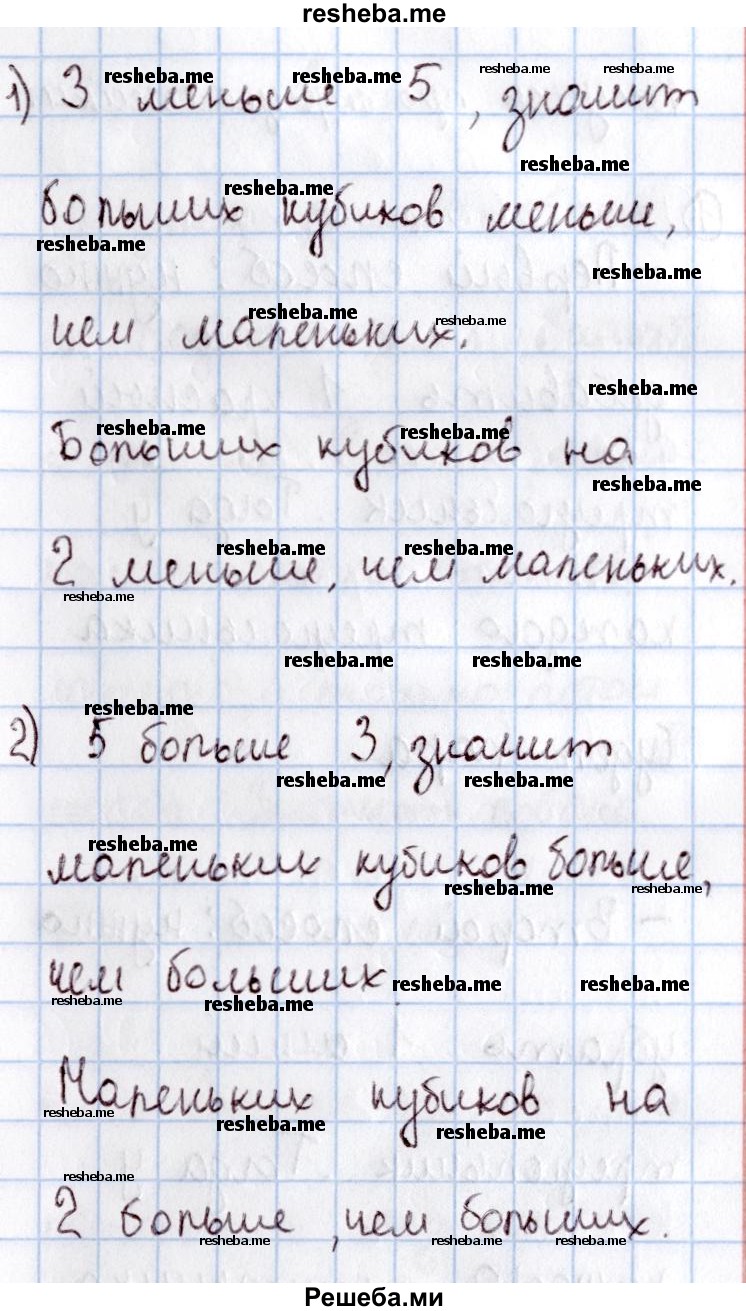 resheba.me
resheba.me resheba.me resheba.me resheba.me
1) 3 меньше 5, значит
resheba.me
resheba.me
больших кубиков меньше,
resheba.me
resheba.me
resheba.me resheba.me
чем маленьких.
resheba.me
resheba.me resheba.me
Больших кубиков на
resheba.me
resheba.me resheba.me
2 меньше, чем маленьких.
resheba.me
resheba.me resheba.me
resheba.me
2) 5 больше 3, значит
resheba.me resheba.me
resheba.me
маленьких кубиков больше,
resheba.me resheba.me
чем больших.
resheba.me resheba.me
resheba.me resheba.me
Маленьких кубиков на
resheba.me
resheba.me resheba.me
resheba.me
2 больше, чем больших.
resheba.me resheba.me resheba.me
Решеба.ми